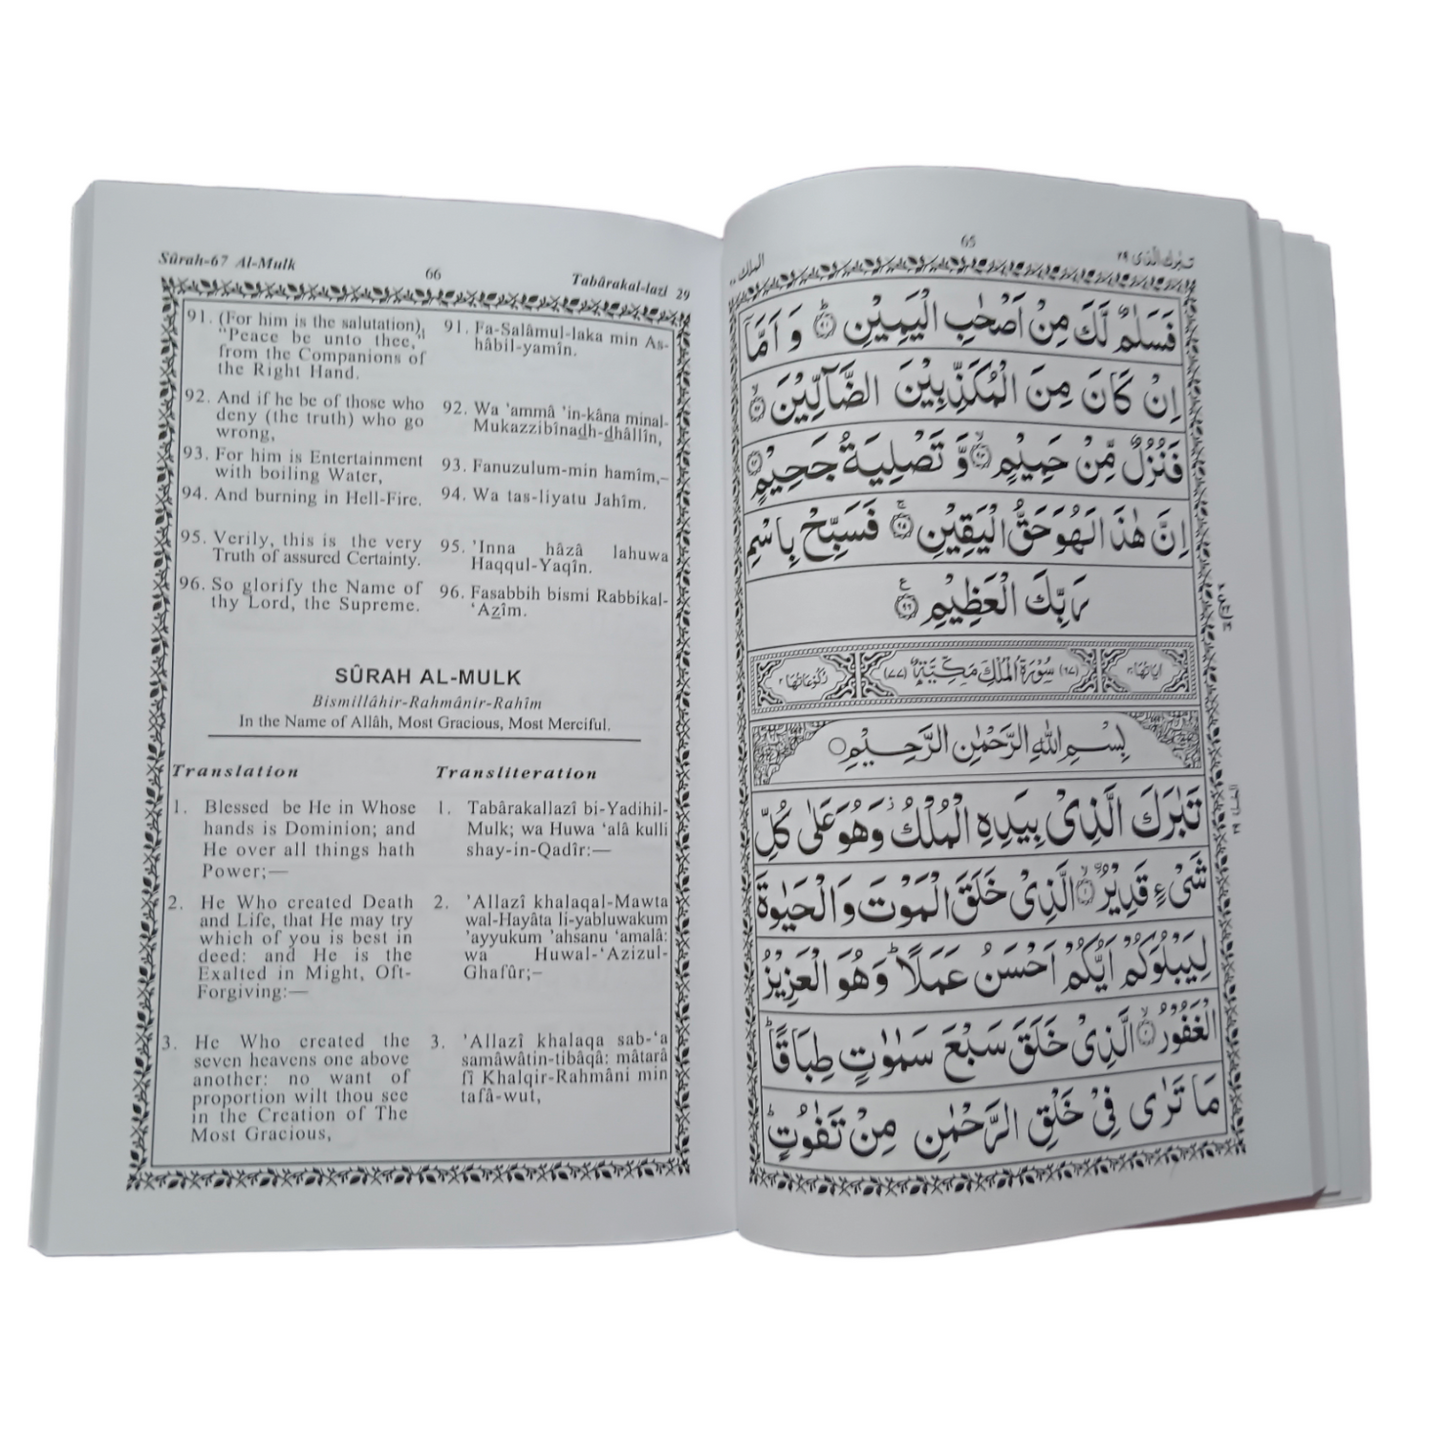 Sûrah-67 Al-Mulk
66
Tabârakal-lazi 29
91. (For him is the salutation),
"Peace be unto thee,"
from the Companions of
the Right Hand.
92. And if he be of those who
deny (the truth) who go
wrong,
93. For him is Entertainment
with boiling Water,
94. And burning in Hell-Fire.
95. Verily, this is the very
Truth of assured Certainty.
96. So glorify the Name of
thy Lord, the Supreme.
91. Fa-Salâmul-laka min As-
hâbil-yamîn.
92. Wa 'ammâ 'in-kâna minal-
Mukazzibînadh-dhâllîn,
93. Fanuzulum-min hamîm,–
94. Wa tas-liyatu Jahîm.
95. 'Inna hâzâ lahuwa
Haqqul-Yaqîn.
96. Fasabbih bismi Rabbikal-
‘Azîm.
SÛRAH AL-MULK
Bismillâhir-Rahmânir-Rahîm
In the Name of Allâh, Most Gracious, Most Merciful.
Translation
1. Blessed be He in Whose
hands is Dominion; and
He over all things hath
Power;—
2. He Who created Death
and Life, that He may try
which of you is best in
deed: and He is the
Exalted in Might, Oft-
Forgiving:—
3. He Who created the
seven heavens one above
another: no want of
proportion wilt thou see
in the Creation of The
Most Gracious,
Transliteration
1. Tabârakallazî bi-Yadihil-
Mulk; wa Huwa ‘alâ kulli
shay-in-Qadîr:—
2. 'Allazî khalaqal-Mawta
wal-Hayâta li-yabluwakum
'ayyukum 'ahsanu 'amalâ:
wa Huwal-‘Azizul-
Ghafûr;–
3. 'Allazî khalaqa sab-‘a
samâwâtin-tibâqâ: mâtarâ
fî Khalqir-Rahmâni min
tafâ-wut,
تبٰرك الذی ٢٩
65
الملك
فَسَلٰمٌ لَّكَ مِنْ اَصْحٰبِ الْيَمِيْنِ ۝٩١ وَ اَمَّاۤ
اِنْ كَانَ مِنَ الْمُكَذِّبِيْنَ الضَّآلِّيْنَ ۝٩٢
فَنُزُلٌ مِّنْ حَمِيْمٍ ۝٩٣ وَّ تَصْلِيَةُ جَحِيْمٍ ۝٩٤
اِنَّ هٰذَا لَهُوَ حَقُّ الْيَقِيْنِ ۝٩٥ فَسَبِّحْ بِاسْمِ
رَبِّكَ الْعَظِيْمِ ۝٩٦
اٰيَاتُهَا ٣٠ (٦٧) سُوْرَةُ الْمُلْكِ مَكِّيَّةٌ (٧٧) رُكُوْعَاتُهَا ٢
بِسْمِ اللهِ الرَّحْمٰنِ الرَّحِيْمِ
تَبٰرَكَ الَّذِیْ بِيَدِهِ الْمُلْكُ ز وَهُوَ عَلٰى كُلِّ
شَیْءٍ قَدِيْرُۨ ۝١ الَّذِیْ خَلَقَ الْمَوْتَ وَالْحَيٰوةَ
لِيَبْلُوَكُمْ اَيُّكُمْ اَحْسَنُ عَمَلًا ؕ وَهُوَ الْعَزِيْزُ
الْغَفُوْرُ ۝٢ الَّذِیْ خَلَقَ سَبْعَ سَمٰوٰتٍ طِبَاقًا ؕ
مَا تَرٰى فِیْ خَلْقِ الرَّحْمٰنِ مِنْ تَفٰوُتٍ ؕ